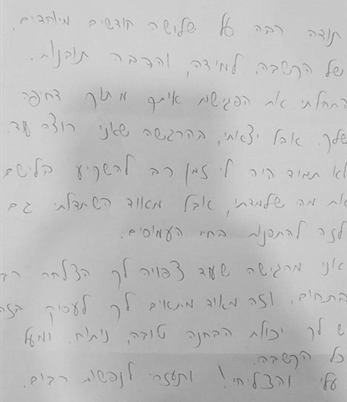 תודה רבה על שלושה חודשים מיוחדים,
של הקשבה, למידה, והרבה תובנות.
התחלתי את הפגישות איתך מתוך דחיפה
שלך. אבל יצאתי, בהרגשה שאני רוצה עוד.
לא תמיד היה לי זמן רב להשקיע ביישום
את מה שלמדתי, אבל מאוד השתדלתי גם
לזה להתפנות בחיי העמוסים.
אני מרגישה שעוד צפויה לך הצלחה רבה
בתחום, וזה מאוד מתאים לך לעסוק בזה
יש לך יכולת הבחנה טובה, ניתוח, ומעל
כל הקשבה.
עלי והצליחי! ותעזרי לנפשות רבות.